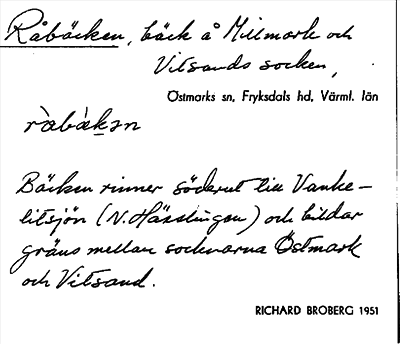 Råbäcken, bäck å Millmark och
Vitsands socken,
Östmarks sn, Fryksdals hd, Värml. län
ràbä̀kən
Bäcken rinner söderut till Vanke-
litsjön (N. Hässlingen) och bildar
gräns mellan socknarna Östmark
och Vitsand.
RICHARD BROBERG 1951